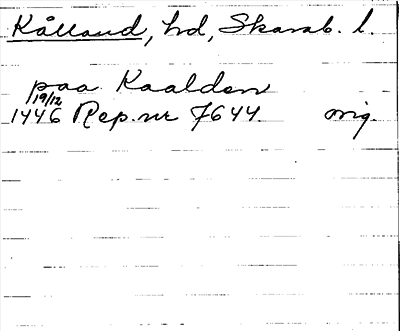 Kålland, hd, Skarab. l.
paa Kaalden
19/12
1446 Rep. nr 7644. orig.